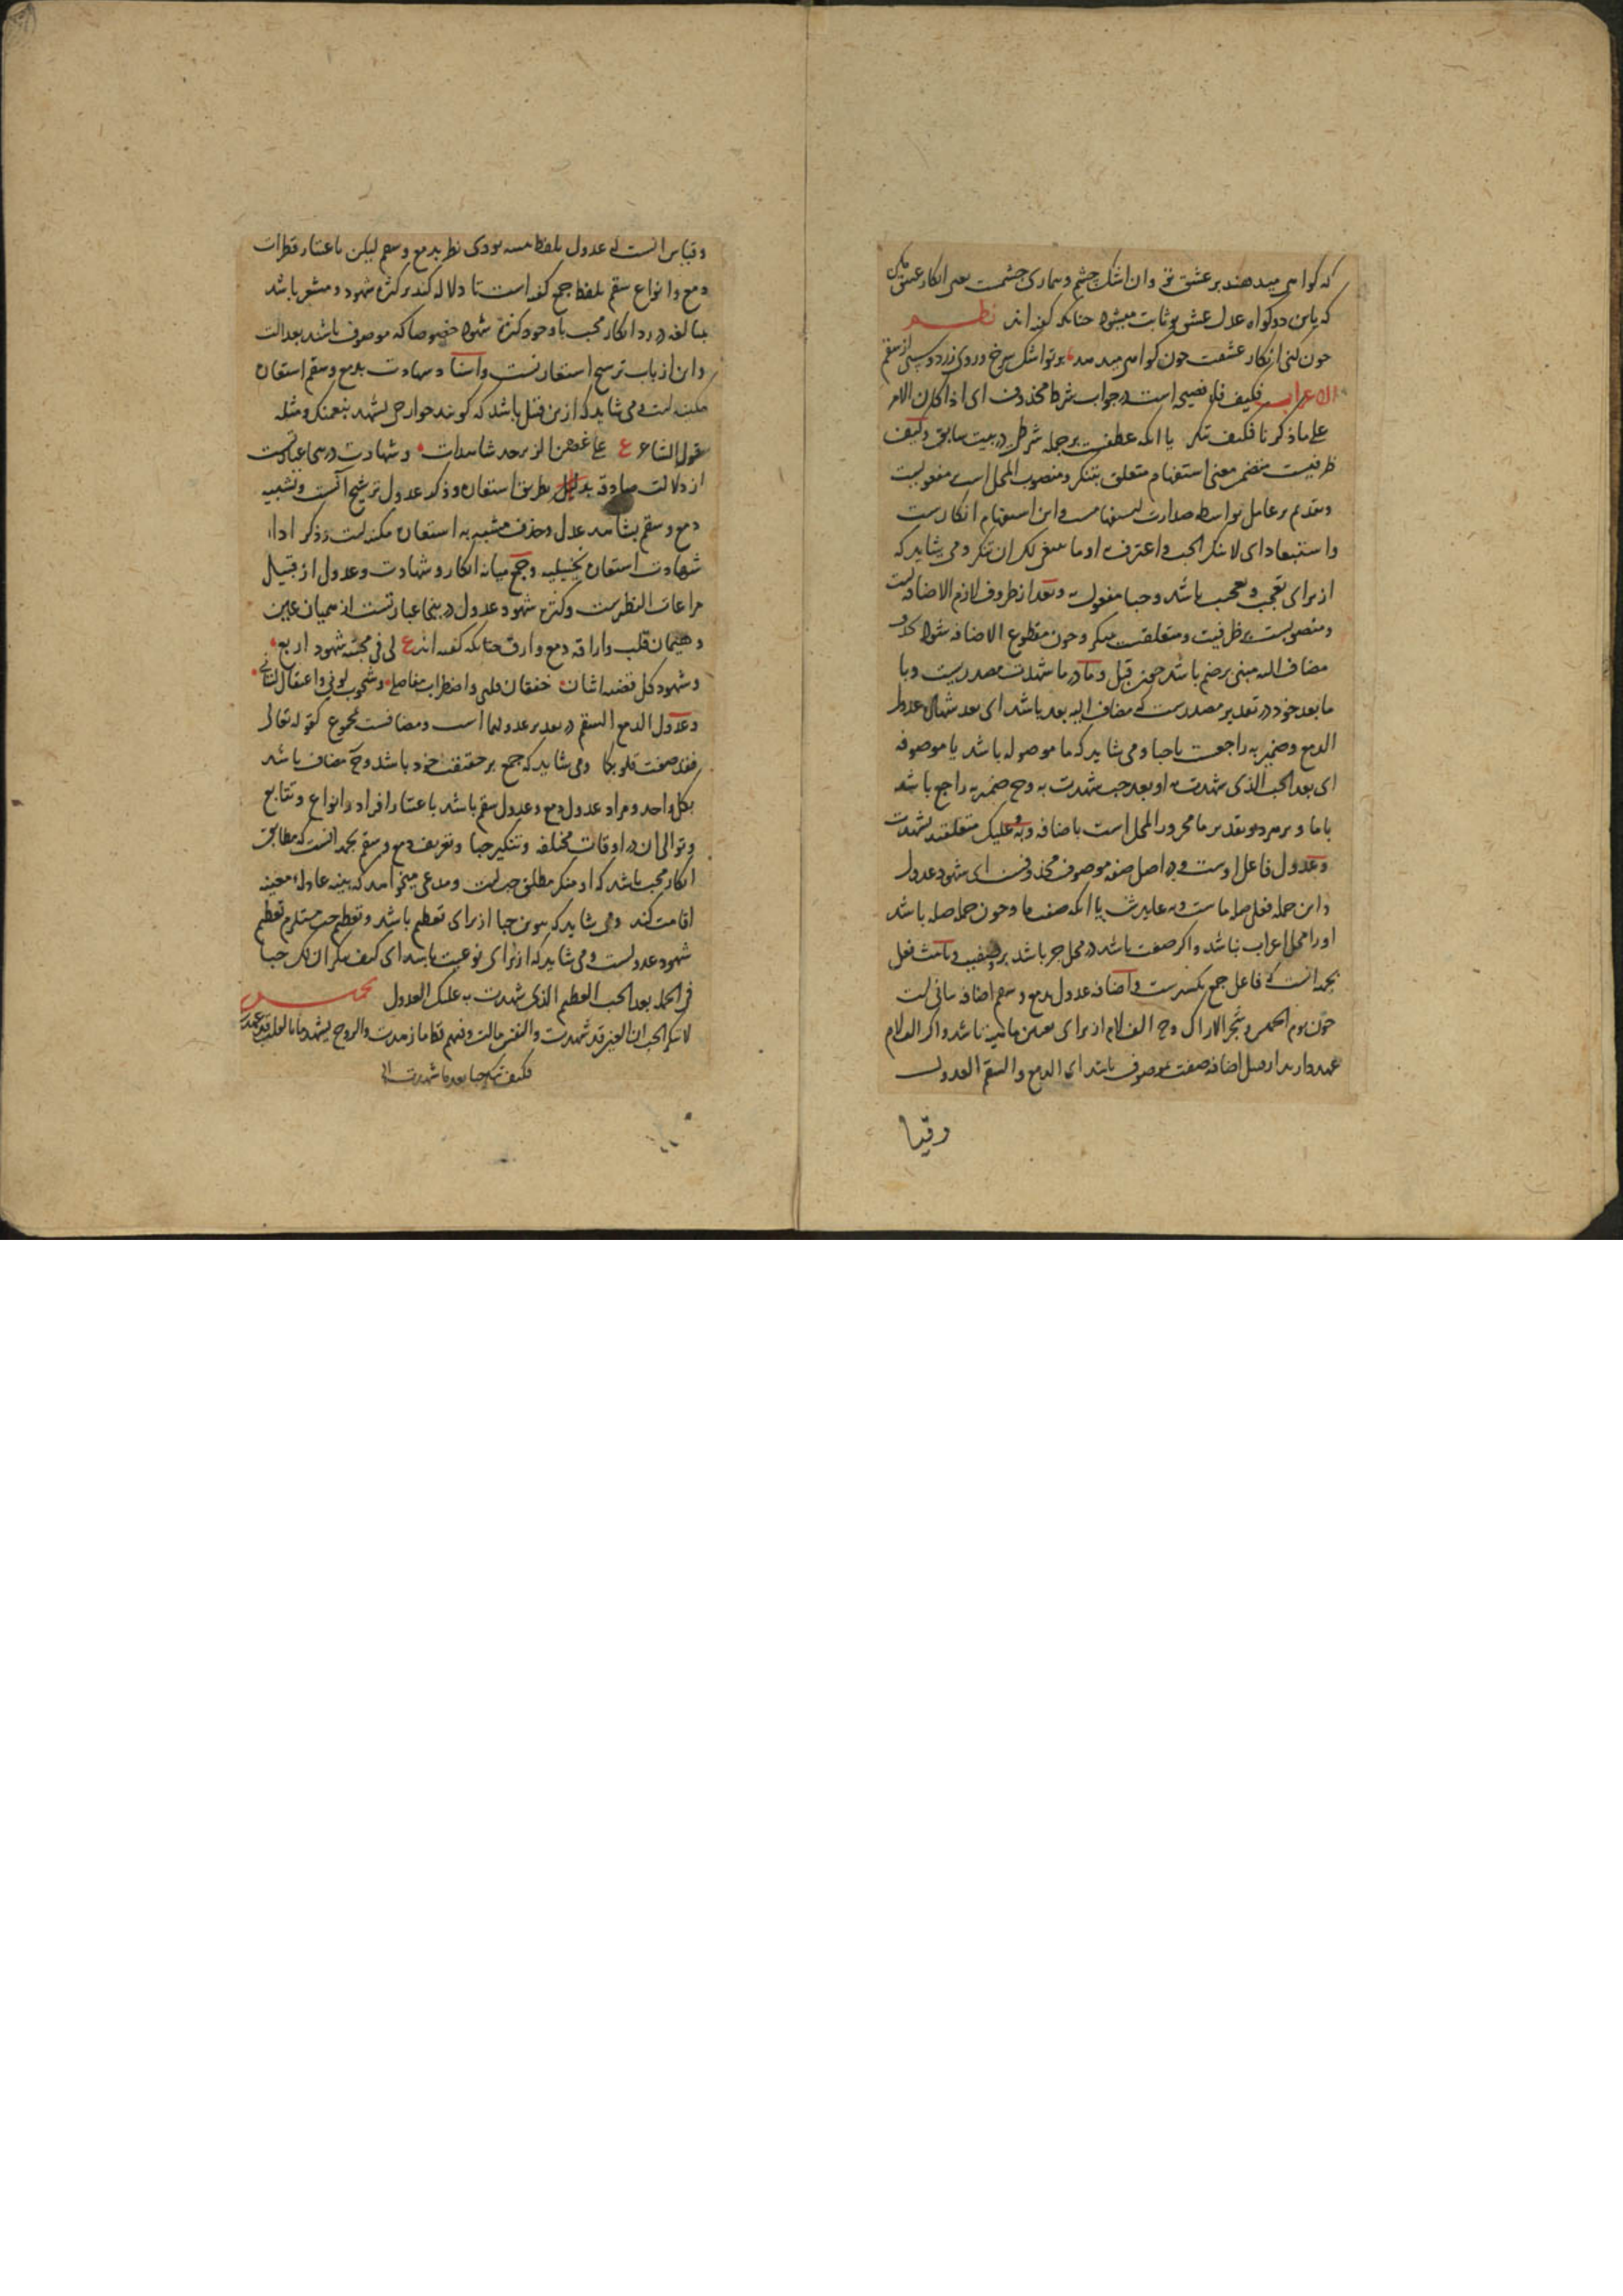 که کواهی میدهند بر عشق تو وان اشک چشم و بیماری جشمت یعنی انکار عشق مکن
که باین دو کواه عدل عشق تو ثابت میشود جنانکه کفته اند نظم
جون کنی انکار عشقت جون کواهی میدهند بر تو اشک سرخ و روی زرد و سستی از سقم
الاعراب فکیف فاء فصیحه است در جواب شرط محذوف ای اذا کان الامر
علی ما ذکرنا فکیف تنکر یا انکه عطفست بر جمله شرطی در بیت سابق و کیف
ظرفیست متضمن معنی استفهام متعلق بتنکر و منصوب المحل است مفعولیت
و تقدیم بر عامل بواسطه صدارت استفهامست و این استفهام انکاریست
و استبعاد ای لا تنکر الحب و اعترف به او ما ینبغی لک ان تنکر و می شاید که
از برای تعجب و تعجیب باشد و حبا مفعول به و بعد از ظروف لازم الاضافه است
و منصوبست بر ظرفیت و متعلقست بتنکر و جون مقطوع الاضافه شود بحذف
مضاف الیه مبنی بر ضم باشد جون قبل و ما در ما شهدت مصدریست و با
ما بعد خود در تقدیر مصدرست که مضاف الیه بعد باشد ای بعد شهادة عدول
الدمع و ضمیر به راجعست با حبا و می شاید که ما موصوله باشد یا موصوفه
ای بعد الحب الذی شهدت به او بعد حب شهدت به وح ضمیر به راجع باشد
با ما و بر هر دو تقدیر ما مجرور المحل است باضافه و به و علیک متعلقند بشهدت
و عدول فاعل اوست و در اصل صفه موصوف محذوفست ای شهود عدول
و این جمله فعلی صله ماست و به عایدش یا انکه صفت ما و جون جمله صله باشد
او را محل اعراب نباشد و اکر صفت باشد در محل جر باشد بر وصفیت و تانیث فعل
بجهة انست که فاعل جمع تکسیرست و اضافه عدول بدمع و سقم اضافه بیانی است
جون یوم الخمیس و شجر الاراک وح الف لام از برای تعیین ماهیت باشد و اکر الف لام
عهد دارند از قبیل اضافه صفت بموصوف باشد ای الدمع و السقم العدول
وقیا
وقیاس انست که عدول بلفظ تثنیه بودی نظر بدمع و سقم لیکن باعتبار قطرات
دمع و انواع سقم بلفظ جمع کفته است تا دلاله کند بر کثرة شهود و مشعر باشد
بمبالغه در رد انکار محب با وجود کثرة شهود خصوصا که موصوف باشند بعدالت
و این از باب ترشیح استعارتست و اسناد شهادت بدمع و سقم استعاره
مکنیه است و می شاید که ازین قبیل باشد که کویند جوارحی تشهد بنعمتک و مثله
بقول الشاعر ع علی غصن الزبرجد شاهدات و شهادت درینجا عبارتست
از دلالت صادقه بدلیل بطریق استعاره و ذکر عدول ترشیح آنست و تشبیه
دمع و سقم بشاهد عدل و حذف مشبه به استعاره مکنیه است و ذکر اداء
شهادت استعاره تخییلیه و جمع میانه انکار و شهادت و عدول از قبیل
مراعات النظیرست و کثرة شهود عدول درینجا عبارتست از همیان عین
و هیمان قلب و اراقه دمع و ارق جنانکه کفته اند ع لی فی محبته شهود اربع
و شهود کل قضیة اثنان خفقان قلبی و اضطراب مفاصلی و شحوب لونی و اعتقال لسانی
و عدول الدمع و السقم در بعد بر عدولهما است و مضافست بمجموع کقوله تعالی
فقد صغت قلوبکما و می شاید که جمع بر حقیقت خود باشد وح مضاف باشد
بکل واحد و مراد عدول دمع و عدول سقم باشد باعتبار افراد و انواع و تتابع
و توالی ان در اوقات مختلفه و تنکیر حبا و تعریف دمع و سقم بجهة انست که مطابق
انکار محب باشد که او منکر مطلق حب است و مدعی میخواهد که بینه عادله معینه
اقامت کند و می شاید که تنوین حبا از برای تعظیم باشد و تعظیم حب مستلزم تعظیم
شهود عدولست و می شاید که از برای نوعیت باشد ای کیف تنکر ان لک حبا
فی الجمله بعد الحب العظیم الذی شهدت به علیک العدول تخمیس
لا تنکر الحب ان العین قد شهدت والنفس مالت
فکیف تنکر حبا بعد ما شهدت الی